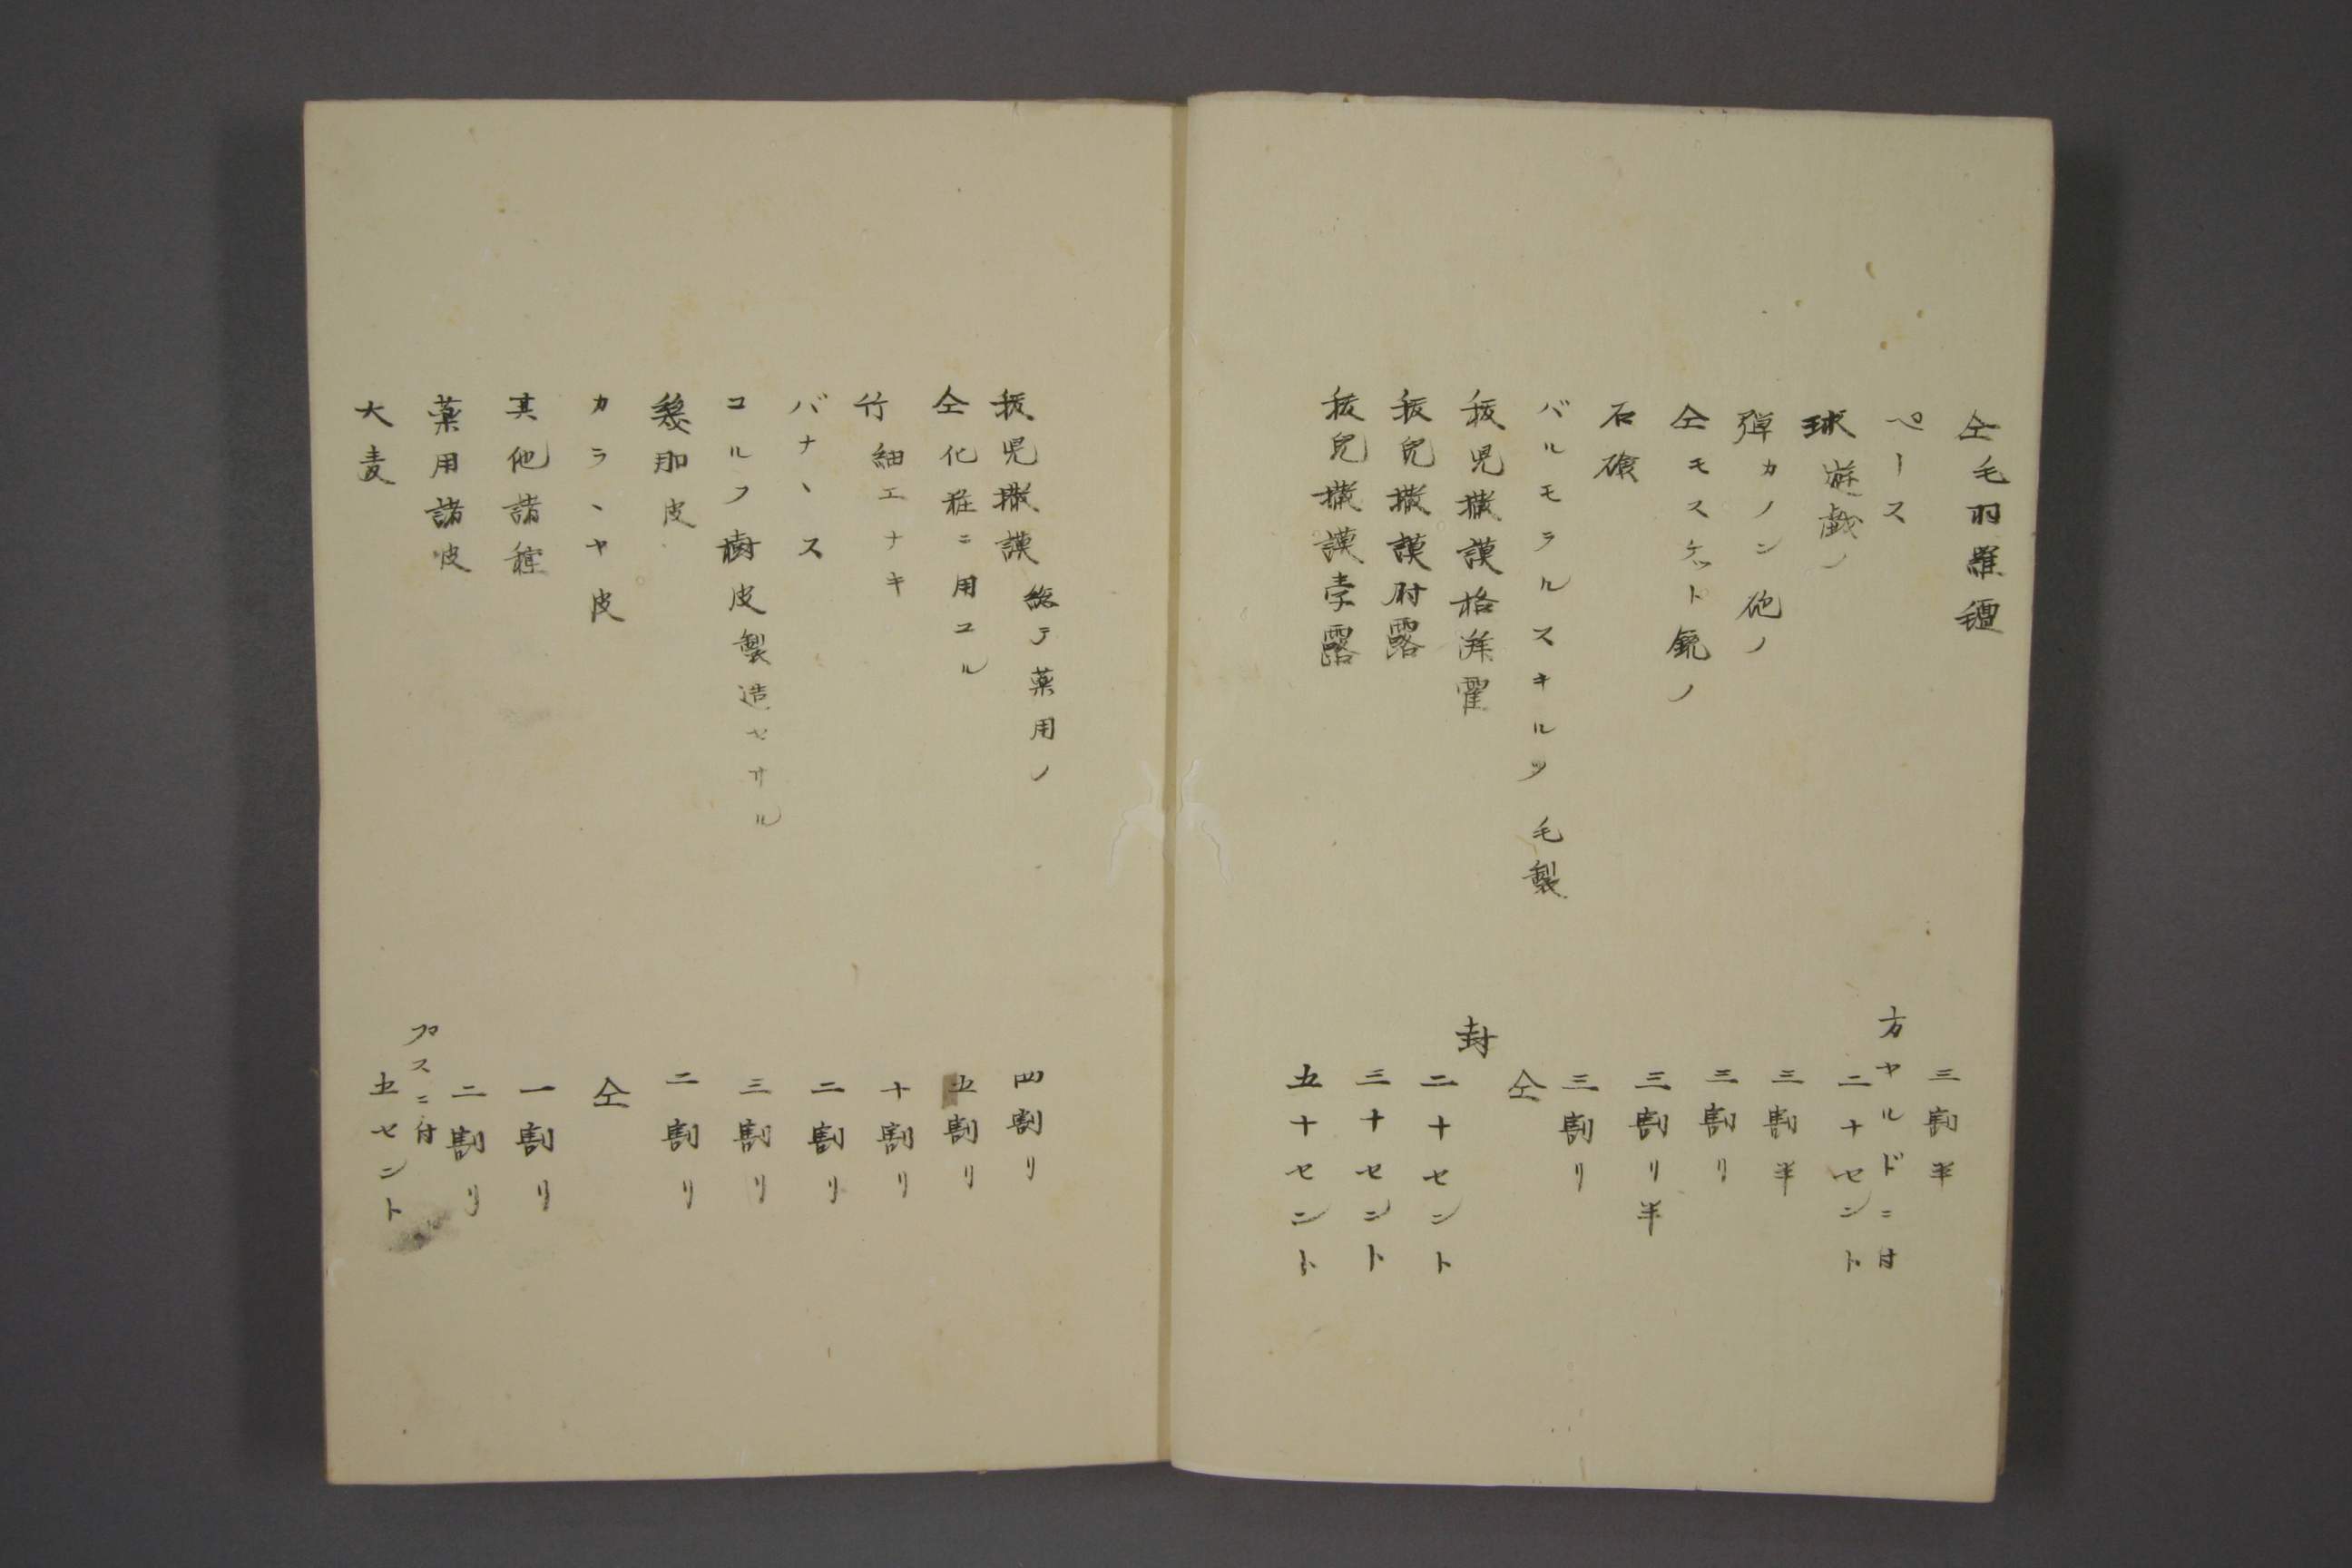 仝毛羽羅氊 三割半
ペース 方ヤルドニ付 二十セント
球遊戯ノ 三割半
弾カノン砲ノ 三割リ
仝モスケット銃ノ 三割リ半
石鹸 三割リ
バルモラルスキルツ毛製 仝
拔児撒謨格湃霍 封 二十セント
拔児撒謨 露 三十セント
拔児撒謨孛露 五十セント
拔児撒謨 総テ薬用ノ 四割リ
仝化粧ニ用ユル 五割リ
竹細エナキ 十割リ
バナヽス 二割リ
コルフ樹皮製造セサル 三割リ
幾那皮 二割リ
カラヽヤ皮 仝
其他諸種 一割リ
薬用諸皮 二割リ
大麦 ニ付 五セント